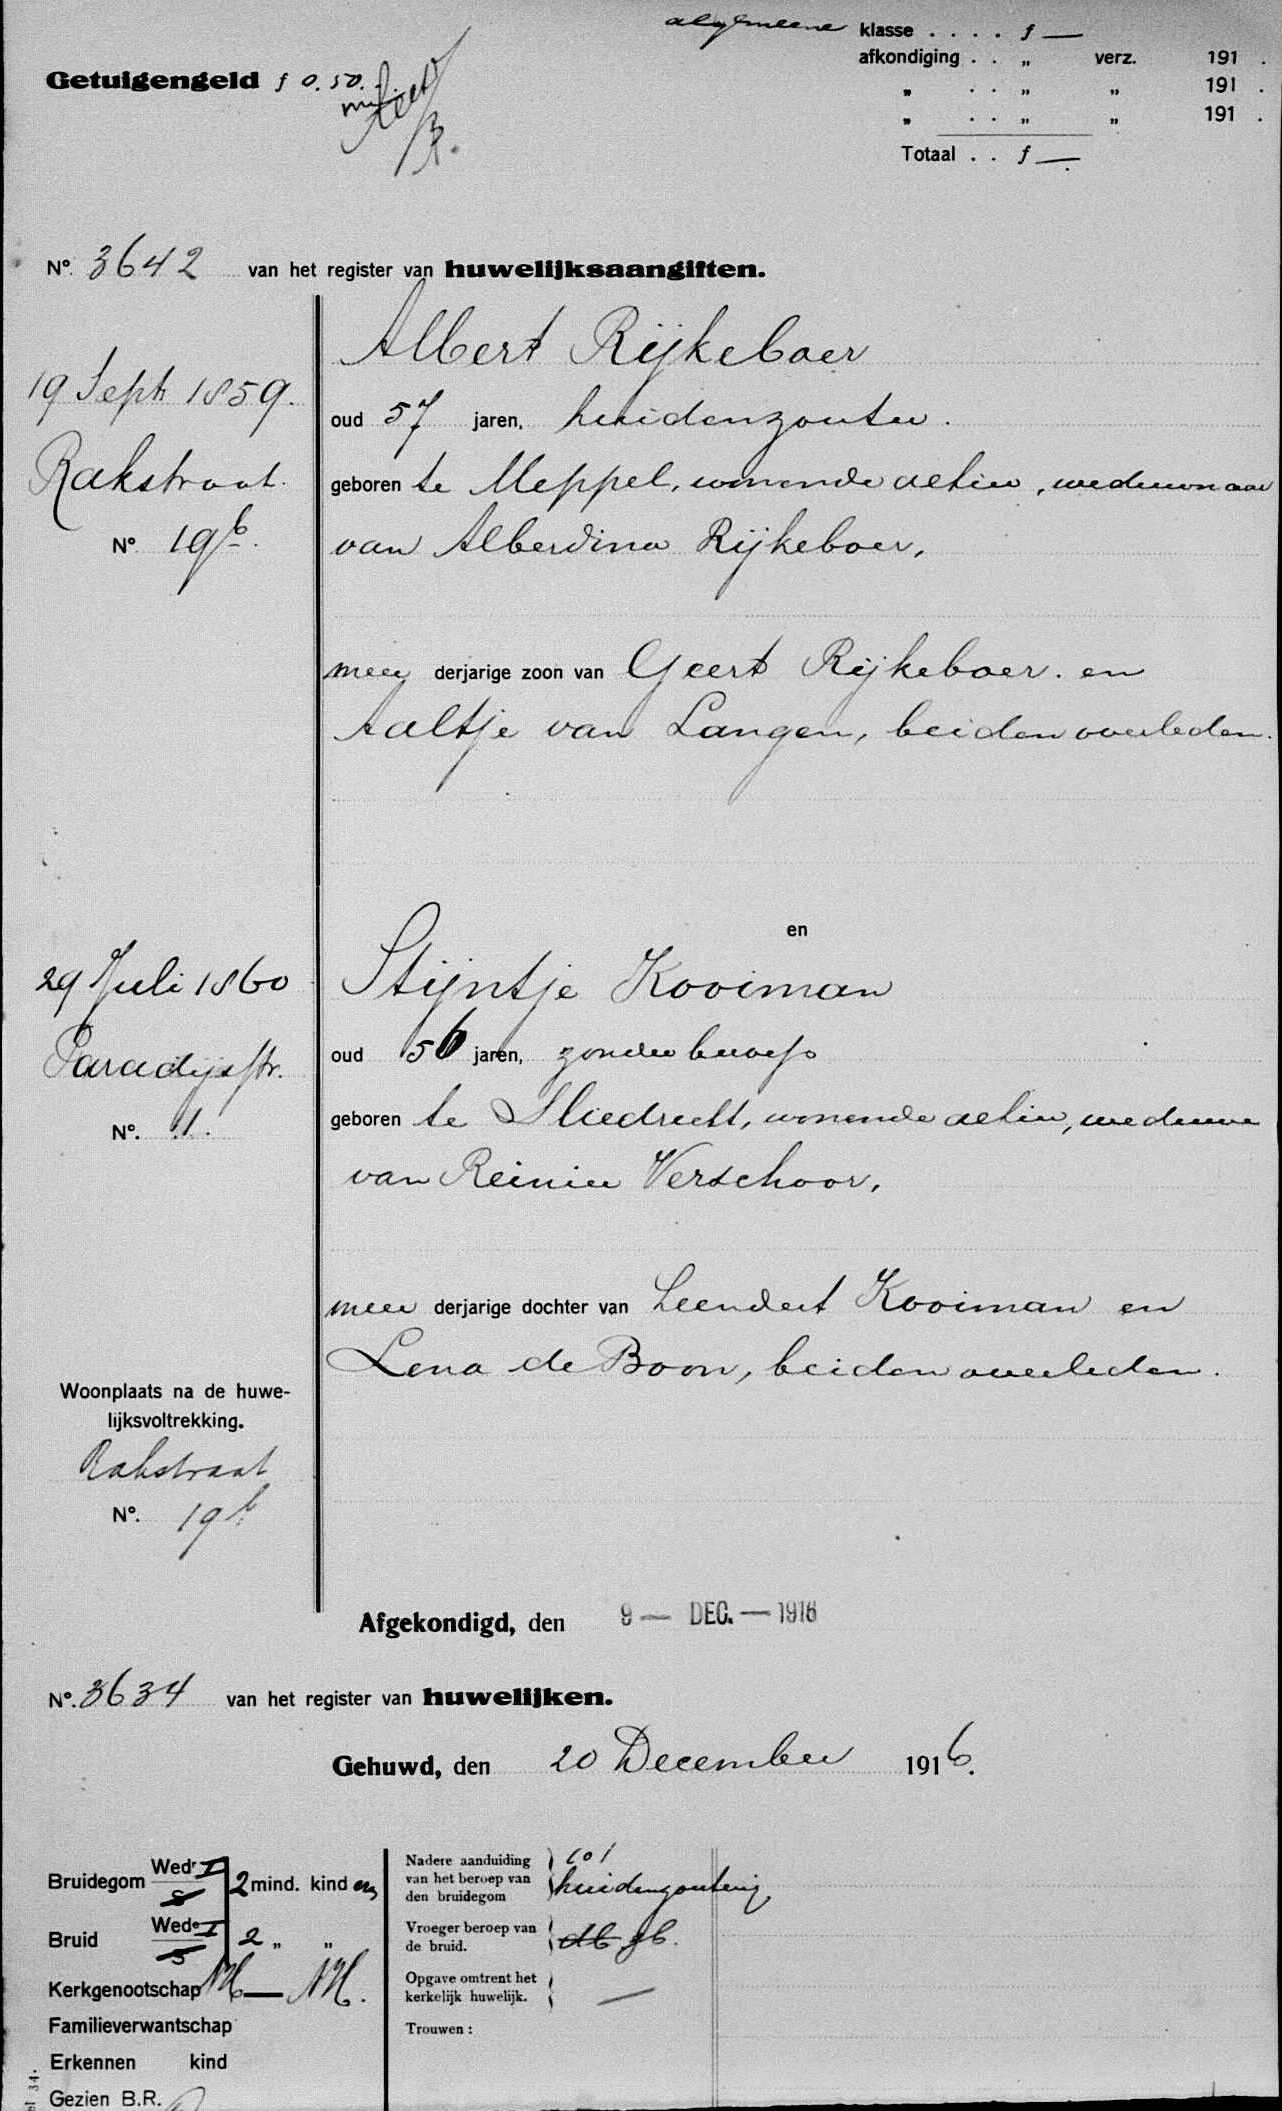 algemeene klasse . . . . f —
afkondiging . . „ verz. 191 .
„ . . „ „ 191 .
„ . . „ „ 191 .
Totaal . . f —
Getuigengeld f 0.50.
No. 3642 van het register van huwelijksaangiften.
Albert Rijkeboer
19 Sept 1859.
oud 57 jaren, huidenzouter.
Rakstraat.
geboren te Meppel, wonende alhier, weduwnaar
No 19b.
van Alberdina Rijkeboer,
meer derjarige zoon van Geert Rijkeboer. en
Aaltje van Langen, beiden overleden.
en
29 Juli 1860
Stijntje Kooiman
Paradijsstr.
oud 56 jaren, zonder beroep
geboren te Sliedrecht, wonende alhier, weduwe
No. 1.
van Reinier Verschoor,
meer derjarige dochter van Leendert Kooiman en
Lena de Boon, beiden overleden.
Woonplaats na de huwe-
lijksvoltrekking.
Rakstraat
No. 19b
Afgekondigd, den 9 — DEC. — 1916
No. 3634 van het register van huwelijken.
Gehuwd, den 20 December 1916.
Bruidegom Wedr I 2 mind. kind en
S
Bruid Wede I 2 „ „
S
Kerkgenootschap NH — NH.
Familieverwantschap
Erkennen kind
Gezien B.R.
Nadere aanduiding
van het beroep van
den bruidegom
huidenzouterij
Vroeger beroep van
de bruid.
db gb.
Opgave omtrent het
kerkelijk huwelijk. —
Trouwen :